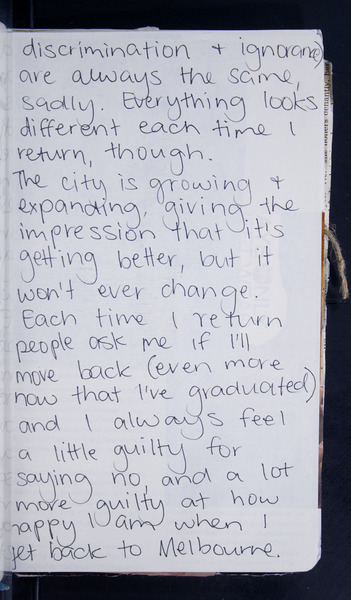 discrimination + ignorance
are always the same,
sadly. Everything looks
different each time I
return, though.
The city is growing +
expanding, giving the
impression that it's
getting better, but it
won't ever change.
Each time I return
people ask me if I'll
move back (even more
now that I've graduated)
and I always feel
a little guilty for
saying no, and a lot
more guilty at how
happy I am when I
get back to Melbourne.